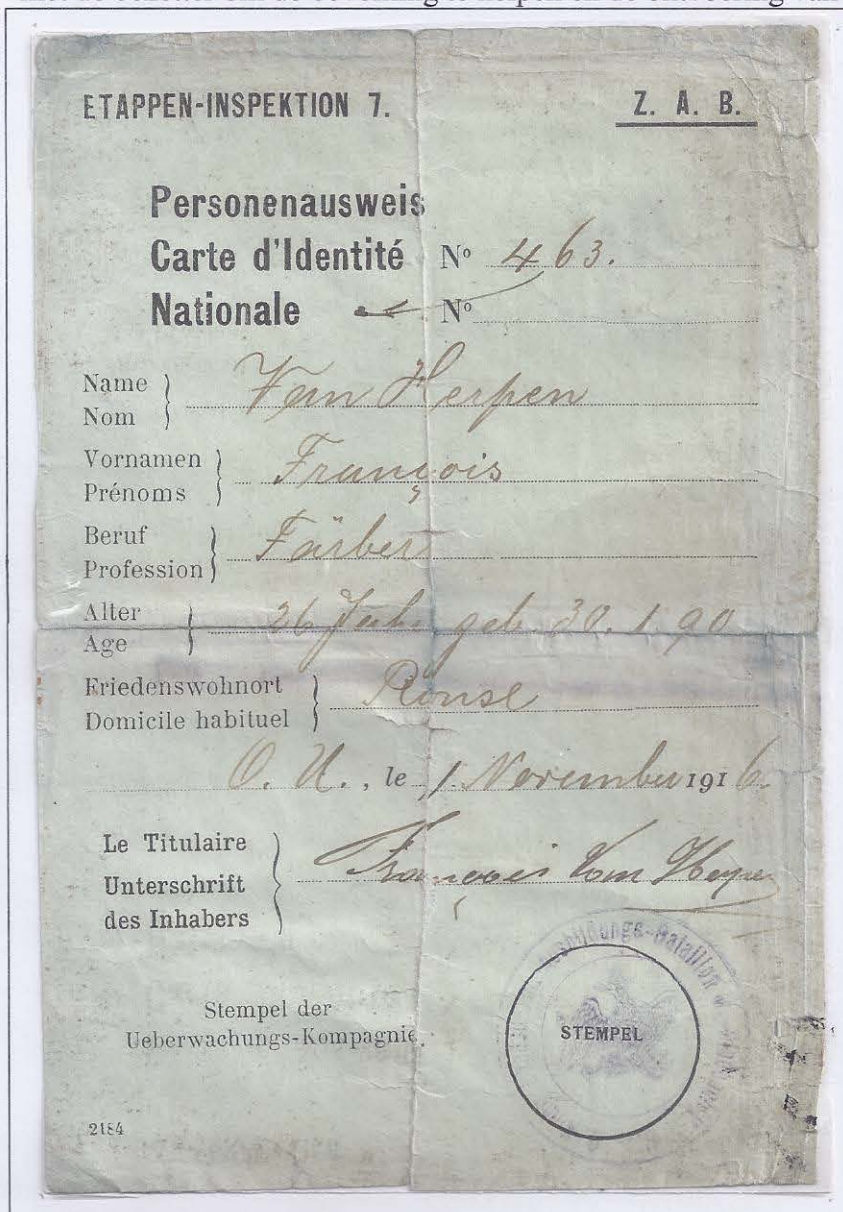 ETAPPEN-INSPEKTION 7.
Z. A. B.
Personenausweis
Carte d'Identité Nº 463.
Nationale Nº
Name
Nom
Van Herpen
Vornamen
Prénoms
François
Beruf
Profession
Färber
Alter
Age
26 Jahr geb. 30. 1. 90
Friedenswohnort
Domicile habituel
O. U., le 1 November 1916.
Le Titulaire
Unterschrift
des Inhabers
François Van Herpen
Stempel der
Ueberwachungs-Kompagnie.
STEMPEL
-Bataillon
2184